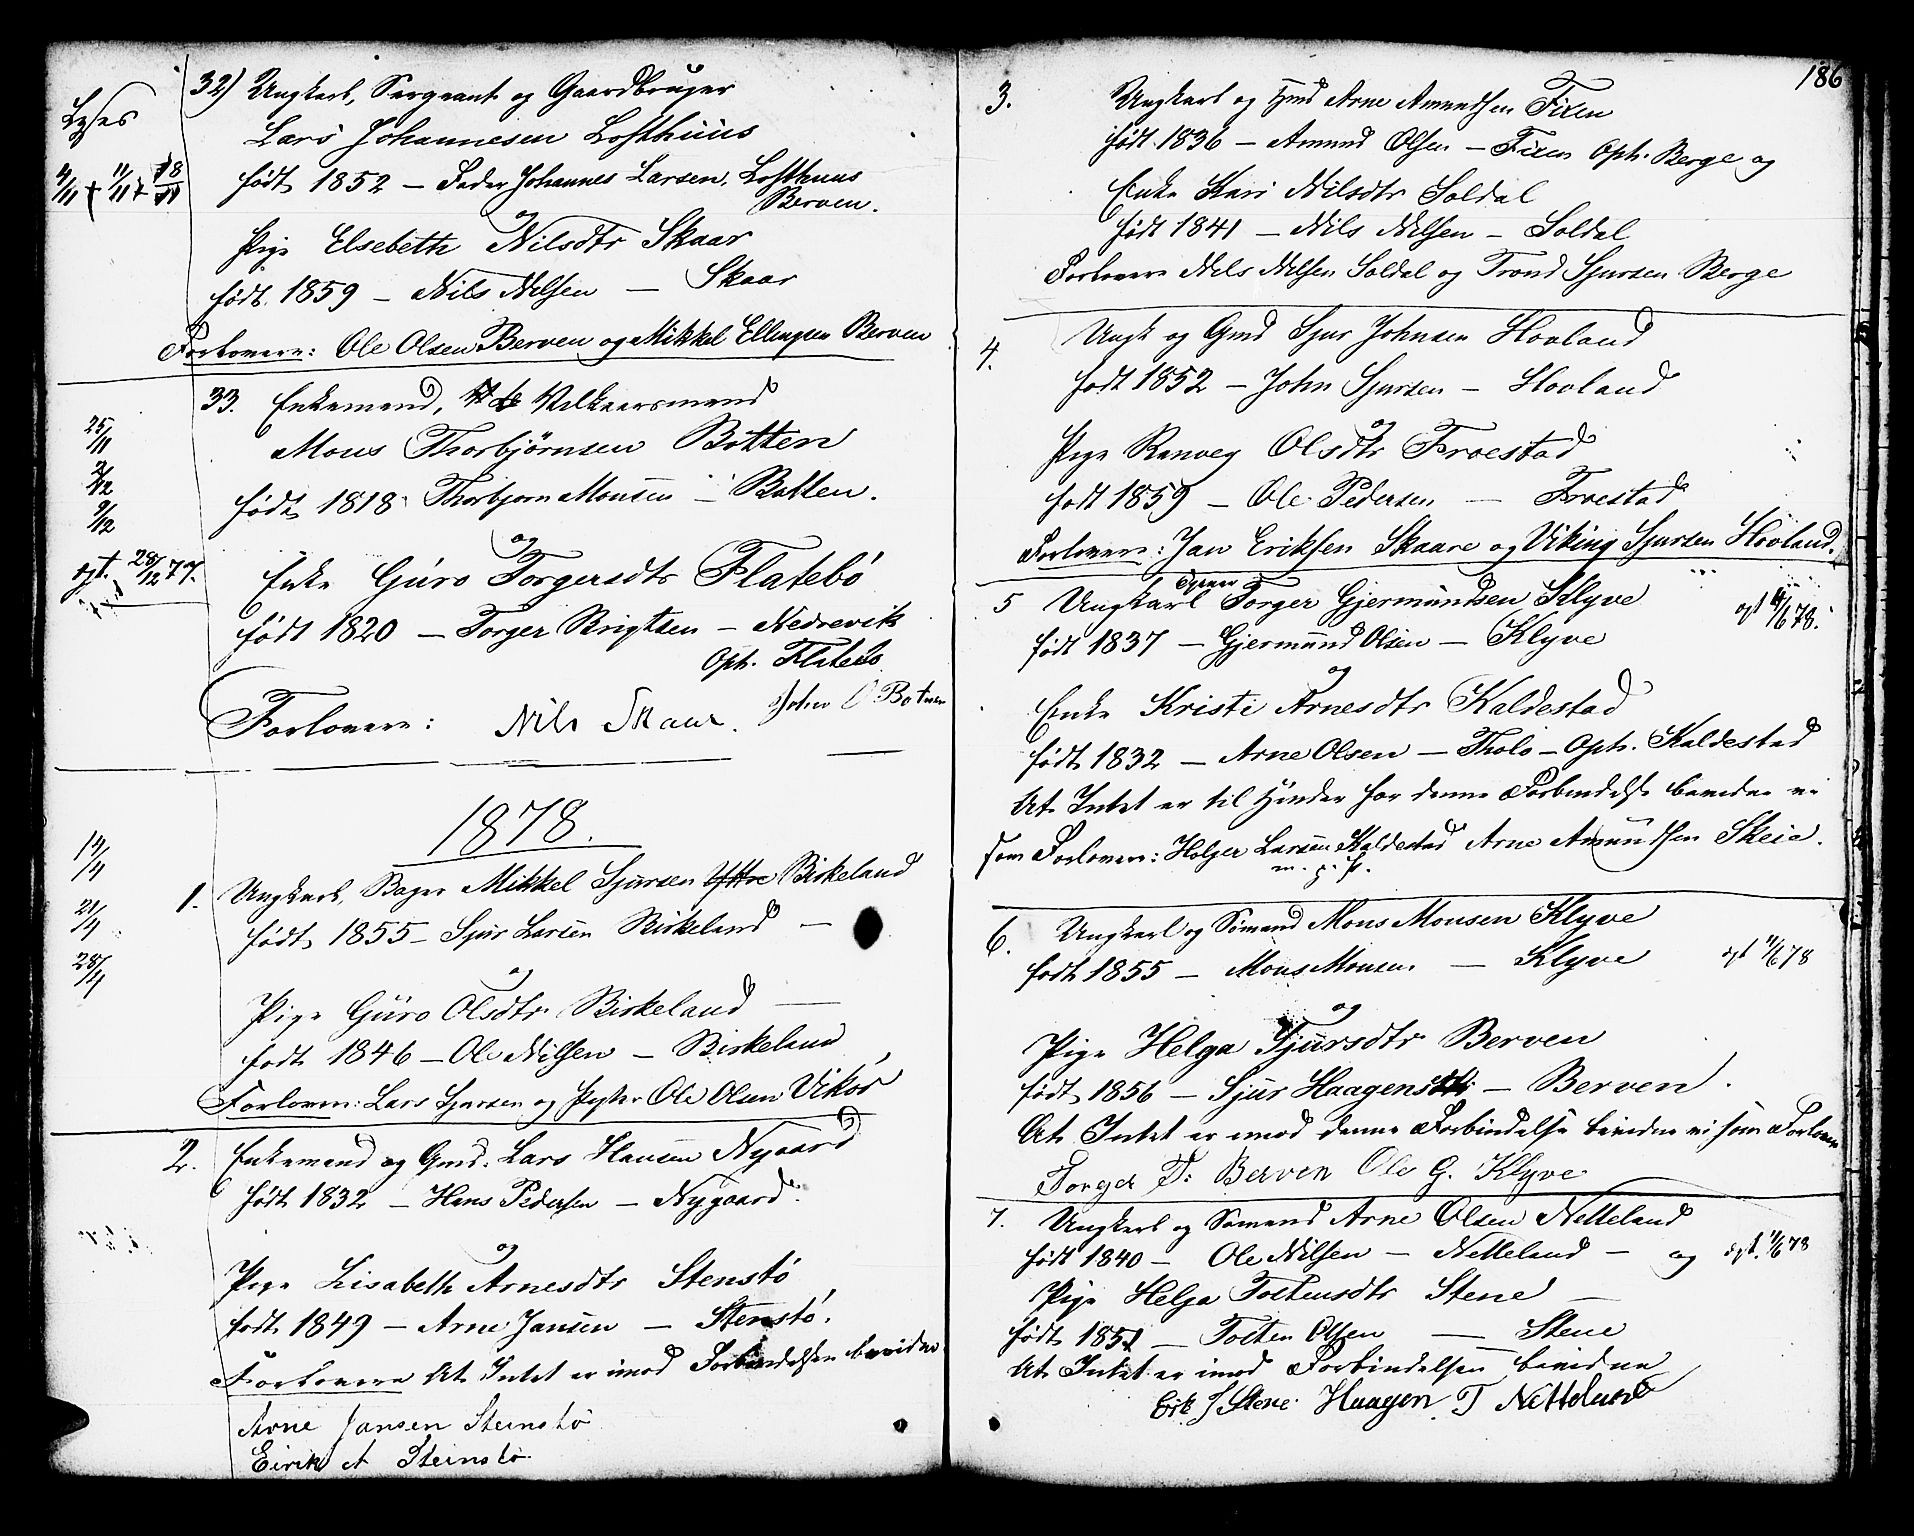 Lyses
32) Ungkarl, Sergeant og Gaardbruger
Lars Johannesen Lofthuus
4/11 + 11/11 + 18/11
født 1852 — Fader Johannes Larsen, Lofthuus
Berven.
og
Pige Elsebeth Nilsdtr Skaar
født 1859 — Nils Nilsen — Skaar
Forlovere: Ole Olsen Berven og Mikkel Ellingsen Berven
33. Enkemand, Vilkaarsmand
25/11
Mons Thorbjørnsen Botten
2/12
født 1818 Thorbjorn Monsen — Botten.
9/12
og
egt. 28/12 77.
Enke Guro Torgersdtr Flatebø
født 1820 — Torger Brigtsen — Nedrevik
Oph. Flatebø
Forlovere: Nils Skaar. John O Botnen
1878.
14/4
1. Ungkarl, Bager Mikkel Sjursen Birkeland
21/4
født 1855 — Sjur Larsen Birkeland —
28/4
og
Pige Guro Olsdtr Birkeland —
født 1846 — Ole Nilsen — Birkeland
Forlovere: Lars Sjursen og Ole Olsen Vikør
2. Enkemand og Gmd. Lars Hansen Nygaard
født 1832 — Hans Pedersen — Nygaard.
og
Pige Lisabeth Arnesdtr Stenstø
født 1849 — Arne Jansen — Stenstø.
Forlovere At Intet er imod Forbindelsen bevidne
Arne Jansen Steinstø
Eirik A Steinstø
186
3. Ungkarl og Hmd Arne Amundsen Fixen
født 1836 — Amund Olsen — Fixen Oph. Berge og
Enke Kari Nilsdtr Soldal
født 1841 — Nils Nilsen — Soldal
Forlovere Nils Nilsen Soldal og Trond Sjursen Berge
4. Ungk og Gmd Sjur Johnsen Hovland
født 1852 — John Sjursen — Hovland
og
Pige Ranveg Olsdtr Froestad
født 1859 — Ole Pedersen — Froestad
Forlovere: Jan Eriksen Skaare og Viking Sjursen Hovland.
5 Ungkarl Torger Gjermundsen Klyve
egt 11/6 78.
født 1837 — Gjermund Olsen — Klyve
og
Enke Kristi Arnesdtr Kaldestad
født 1832 — Arne Olsen — Tholo — Oph. Kaldestad
At Intet er til Hinder for denne Forbindelse bevidne vi
som Forlovere: Holger Larsen Kaldestad Arne Amundsen Skeie.
m. p. P.
6. Ungkarl og Sømand Mons Monsen Klyve
født 1855 — Mons Monsen — Klyve egt 11/6 78
og
Pige Helga Sjursdtr Berven
født 1856 — Sjur Haagens — Berven.
At Intet er imod denne Forbindelse bevidne vi som Forlovere
Torger T. Berven Ole G. Klyve
7. Ungkarl og Sømand Arne Olsen Netteland
født 1840 — Ole Nilsen — Netteland — og egt. 11/6 78
Pige Helga Tostensdtr Stene —
født 1851 — Tosten Olsen — Stene
At Intet er imod Forbindelsen bevidne
Erk J Stene. Haagen T Netteland